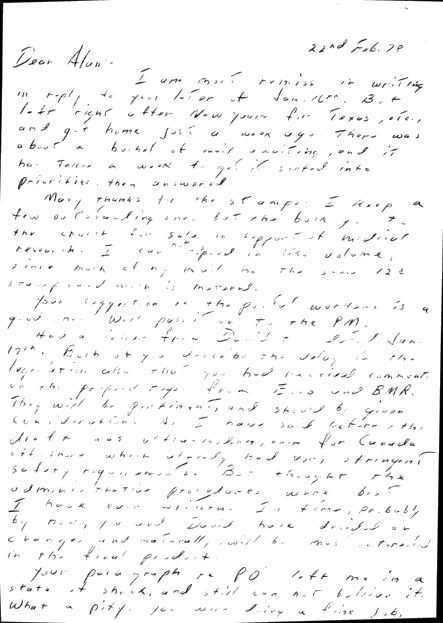 22nd Feb. 79
Dear Alan:-
I am most remiss in writing
in reply to your letter of Jan. 16th. But
left right after New Years for Texas, etc.,
and got home just a week ago. There was
about a bushel of mail awaiting, and it
has taken a week to get it sorted into
priorities, then answered.
Many thanks for the stamps. I keep a
few outstanding ones but the bulk go to
the church for sale in support of medical
research. I can respond in like volume,
since much of my mail has the same 12¢
stamp and is material.
Your suggestion re the postal workers is a
good one. Will pass it on to the PM.
Had a letter from David dated Jan.
17th. Both of you describe the delay in the
legislation also that you had received comments
on the proposed regs from Esso and BMR.
They will be pertinent, and should be given
consideration. As I have said before, the
draft was ultra-modern, even for Canada
off-shore which already had very stringent
safety requirements. But thought the
administrative procedures were best
I have ever written. In time, probably
by now, you and David have decided on
changes and naturally, will be most interested
in the final product.
Your paragraph re PO left me in a
state of shock, and still can not believe it.
What a pity. You were doing a fine job,